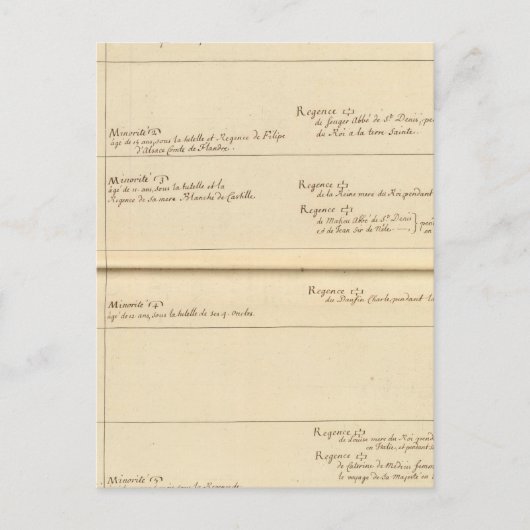 Minorité 2
âgé de 15 ans, sous la tutelle et Regence de Filipe
d'Alsace Comte de Flandre.
Regence
de Suger Abbé de St. Denis, pe
du Roi a la terre Sainte.
Minorité 3
âgé de 11 ans, sous la tutelle et la
Regence de sa mere Blanche de Castille.
Regence
de la Reine mere du Roi, pendant
Regence
de Mahieu Abbé de St. Denis
et de Jean Sir de Nêle
Minorité 4
âgé de 12 ans, sous la tutelle de ses 4. oncles.
Regence
du Daufin Charle, pendant la
Regence
de Louise mere du Roi pend
en Italie, et pendant s
Regence
de Caterine de Medicis femm
le voyage de Sa Majesté en
Minorité 5